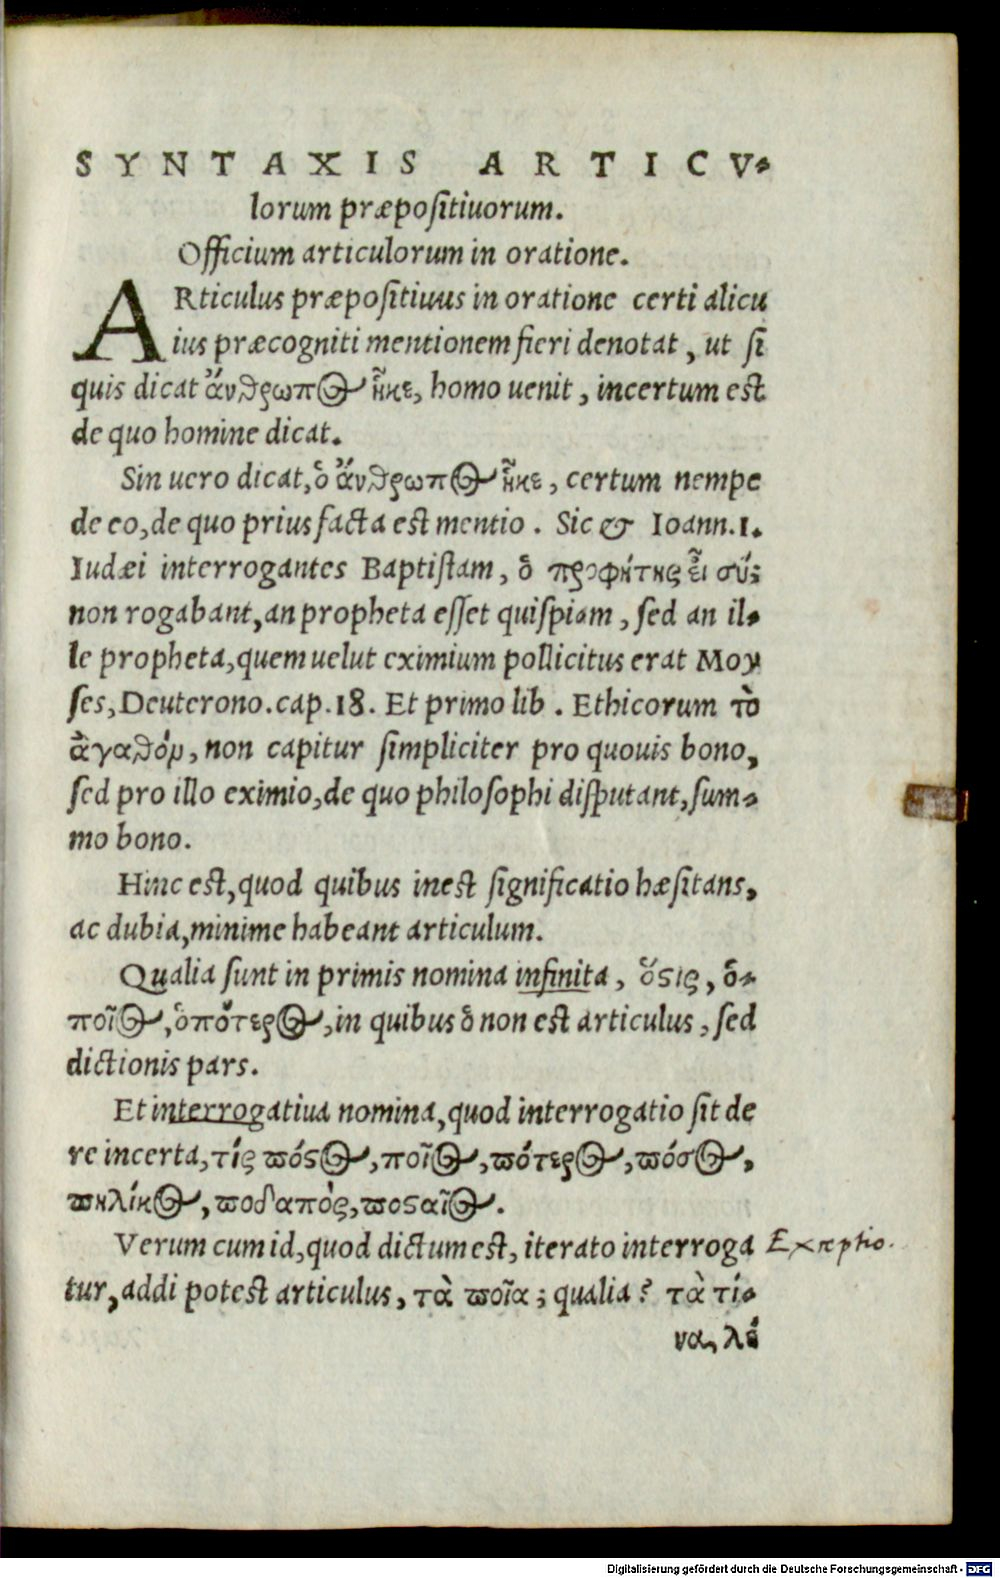 SYNTAXIS ARTICV-
lorum præpositiuorum.
Officium articulorum in oratione.
ARticulus præpositiuus in oratione certi alicu
ius præcogniti mentionem fieri denotat, ut si
quis dicat ἄνθρωπος ἧκε, homo uenit, incertum est
de quo homine dicat.
Sin uero dicat, ὁ ἄνθρωπος ἧκε, certum nempe
de eo, de quo prius facta est mentio. Sic & Ioann.1.
Iudæi interrogantes Baptistam, ὁ προφήτης εἶ σύ;
non rogabant, an propheta esset quispiam, sed an il-
le propheta, quem uelut eximium pollicitus erat Moy
ses, Deuterono.cap.18. Et primo lib. Ethicorum τὸ
ἀγαθόν, non capitur simpliciter pro quouis bono,
sed pro illo eximio, de quo philosophi disputant, sum-
mo bono.
Hinc est, quod quibus inest significatio hæsitans,
ac dubia, minime habeant articulum.
Qualia sunt in primis nomina infinita, ὅστις, ὁ-
ποῖος, ὁπότερος, in quibus ὁ non est articulus, sed
dictionis pars.
Et interrogatiua nomina, quod interrogatio sit de
re incerta, τίς πόστος, ποῖος, πότερος, πόσος,
πηλίκος, ποδαπὸς, ποσταῖος.
Verum cum id, quod dictum est, iterato interroga
Exceptio.
tur, addi potest articulus, τὰ ποῖα; qualia? τὰ τί-
να, λέ
Digitalisierung gefördert durch die Deutsche Forschungsgemeinschaft - DFG